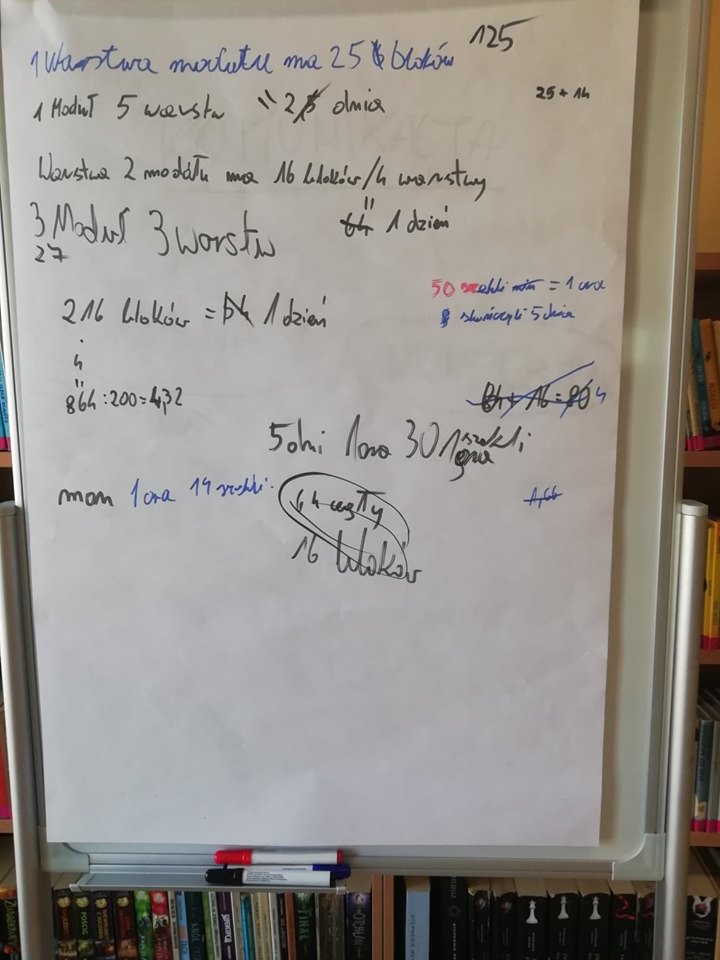 1 Warstwa modułu ma 25 bloków 125
1 Moduł 5 warstw " 2 dnia
25 + 14
Warstwa 2 modułu ma 16 bloków/4 warstwy
"
3 Moduł 3 warstw
64 1 dzień
27
50 = 1 ora
216 bloków = 1 dzień
skończyli 5 dnia
4
"
864:200=4,32
64 + 16 = 80 4
5 dni 1 ora 30 szekli
1 gra
mam 1 ora 14 szekli.
64 cegły
1,66
16 bloków